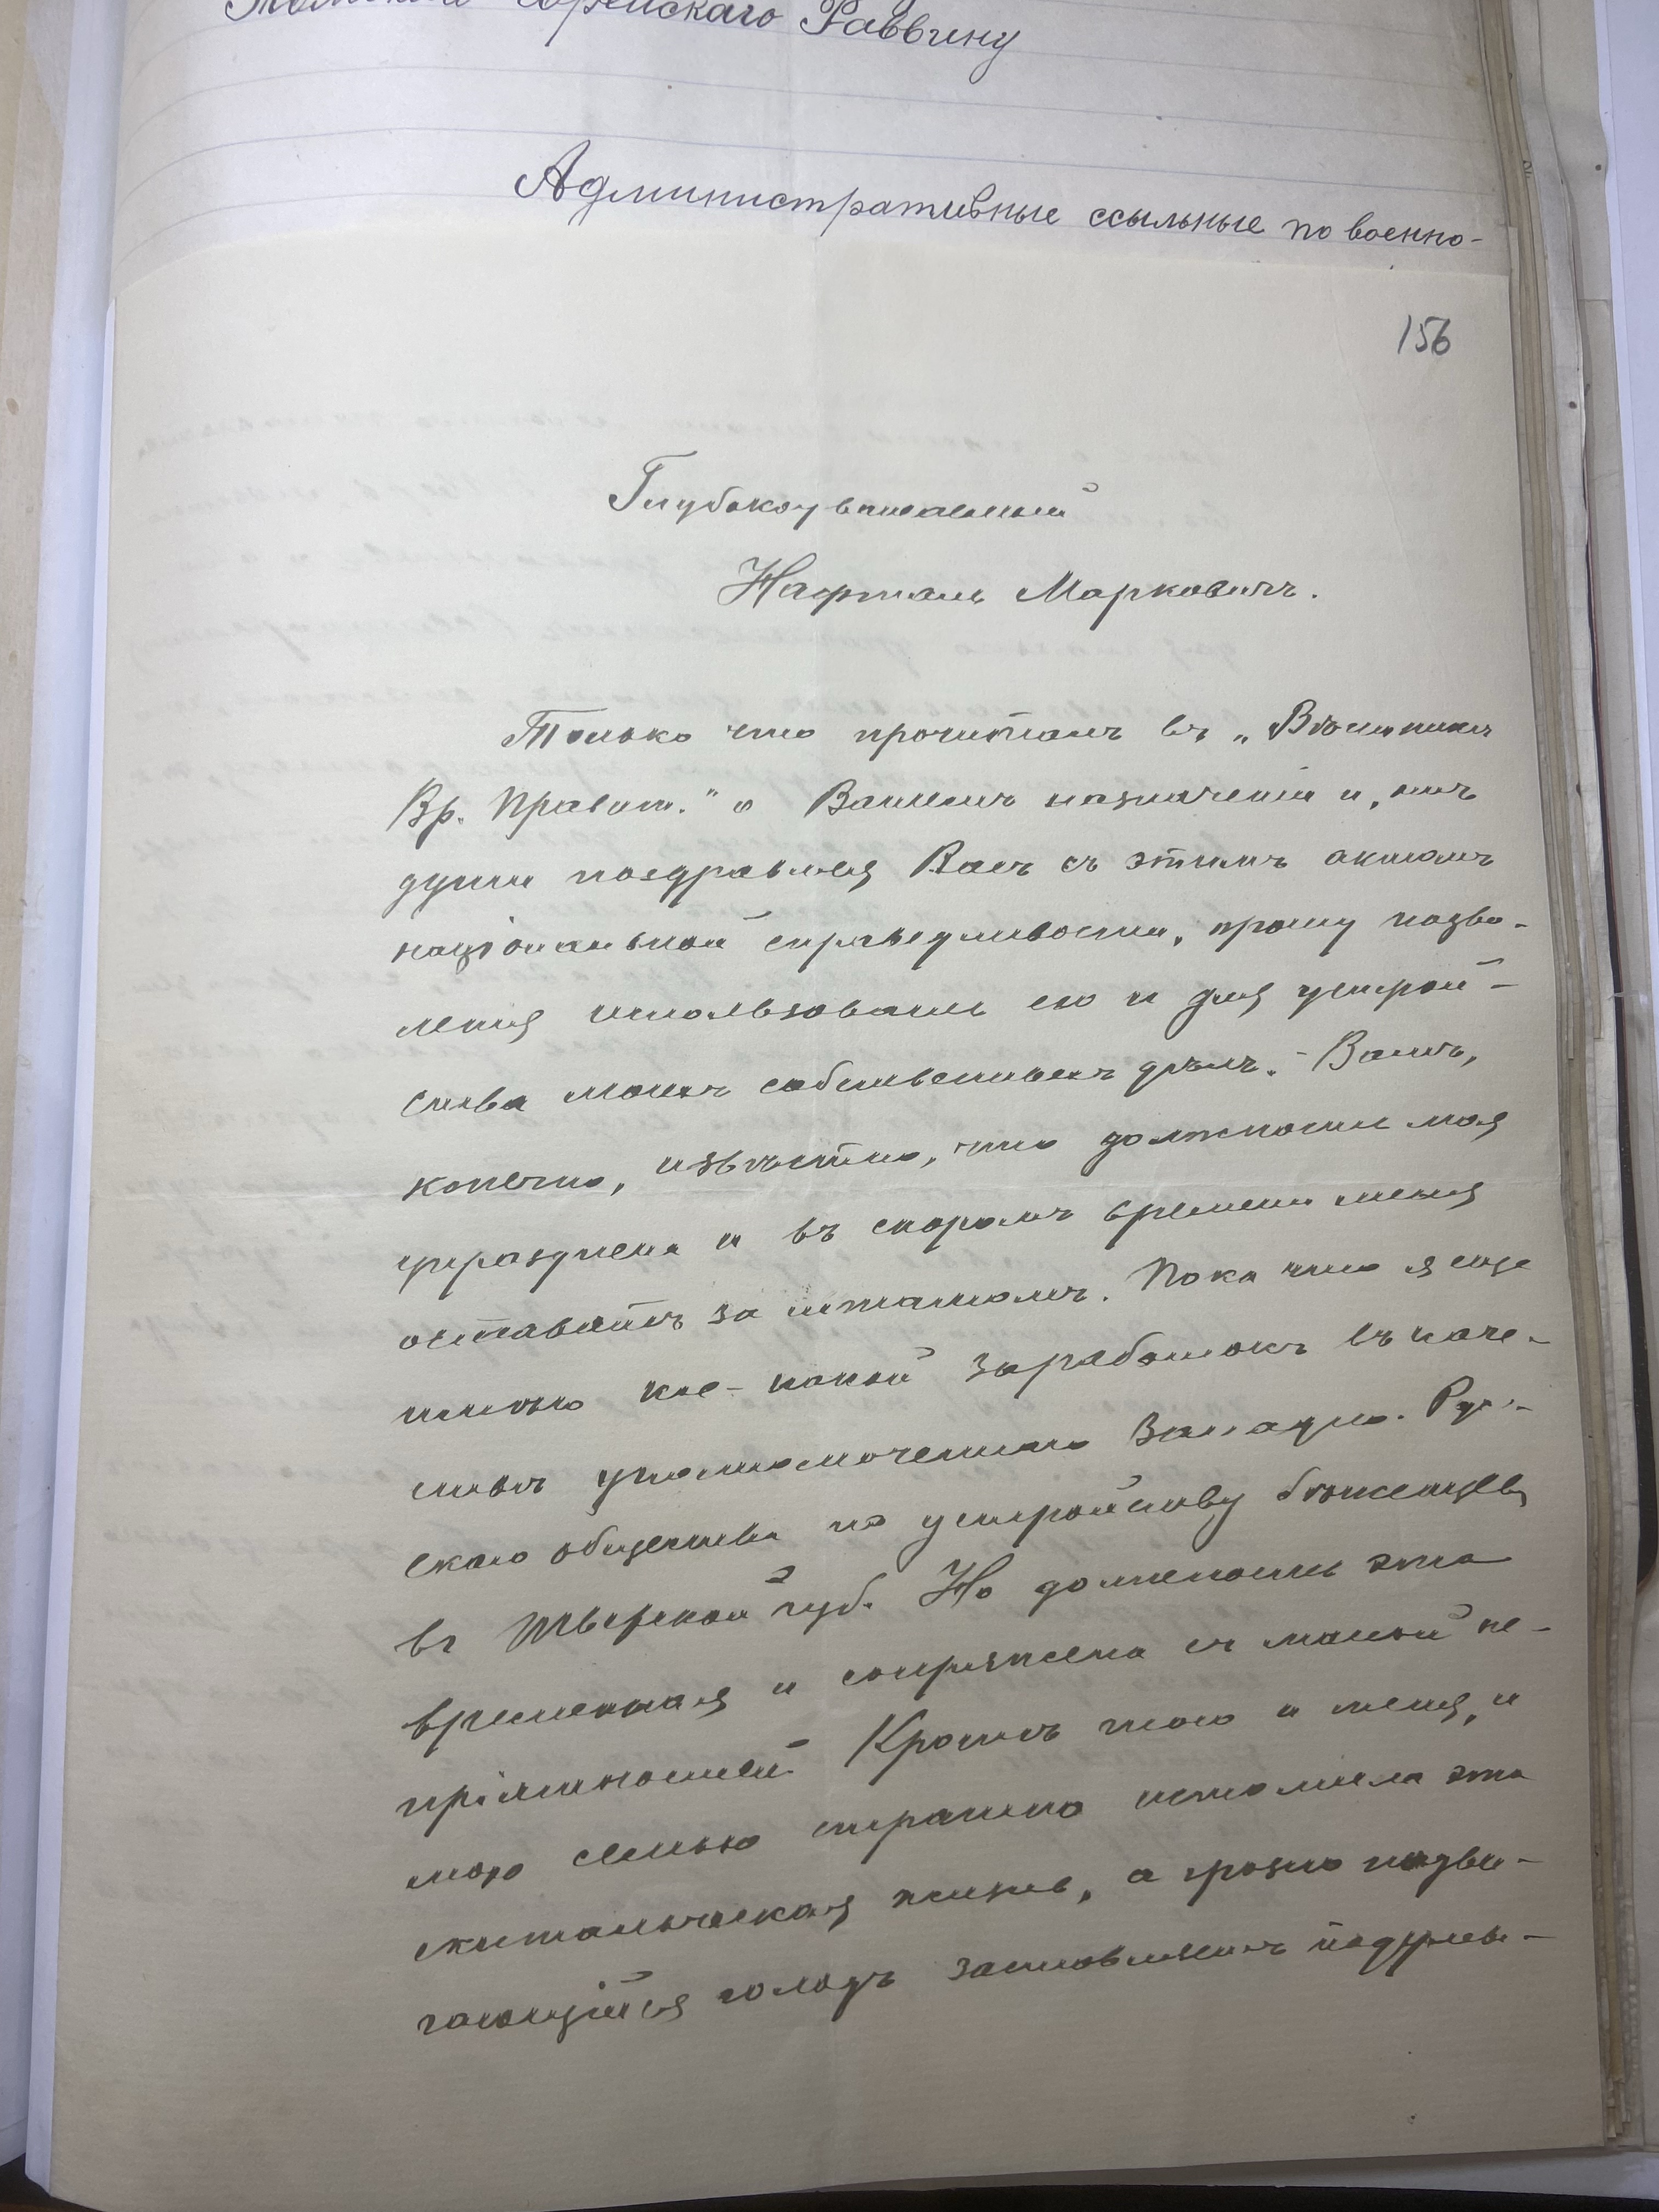 Еврейскаго Раввину
Административные ссыльные по военно-
156
Глубокоуважаемый
Нафталь Марковичъ.
Только что прочиталъ въ „Вѣстникѣ
Вр. Правит." о Вашемъ назначеніи и, отъ
души поздравляя Васъ съ этимъ актомъ
національной справедливости, прошу позво-
ленія использовать его и для устрой-
ства моихъ собственныхъ дѣлъ. - Вамъ,
конечно, извѣстно, что должность моя
упразднена и въ скоромъ времени меня
оставятъ за штатомъ. Пока что я еще
имѣю кое-какой заработокъ въ каче-
ствѣ уполномоченнаго Западно-Рус-
скаго общества по устройству бѣженцевъ
въ Тверской губ. Но должность эта
временная и сопряжена съ массой не-
пріятностей. Кромѣ того и меня, и
мою семью страшно истомила эта
скитальческая жизнь, а грозно надви-
гающійся голодъ заставляетъ подумы-